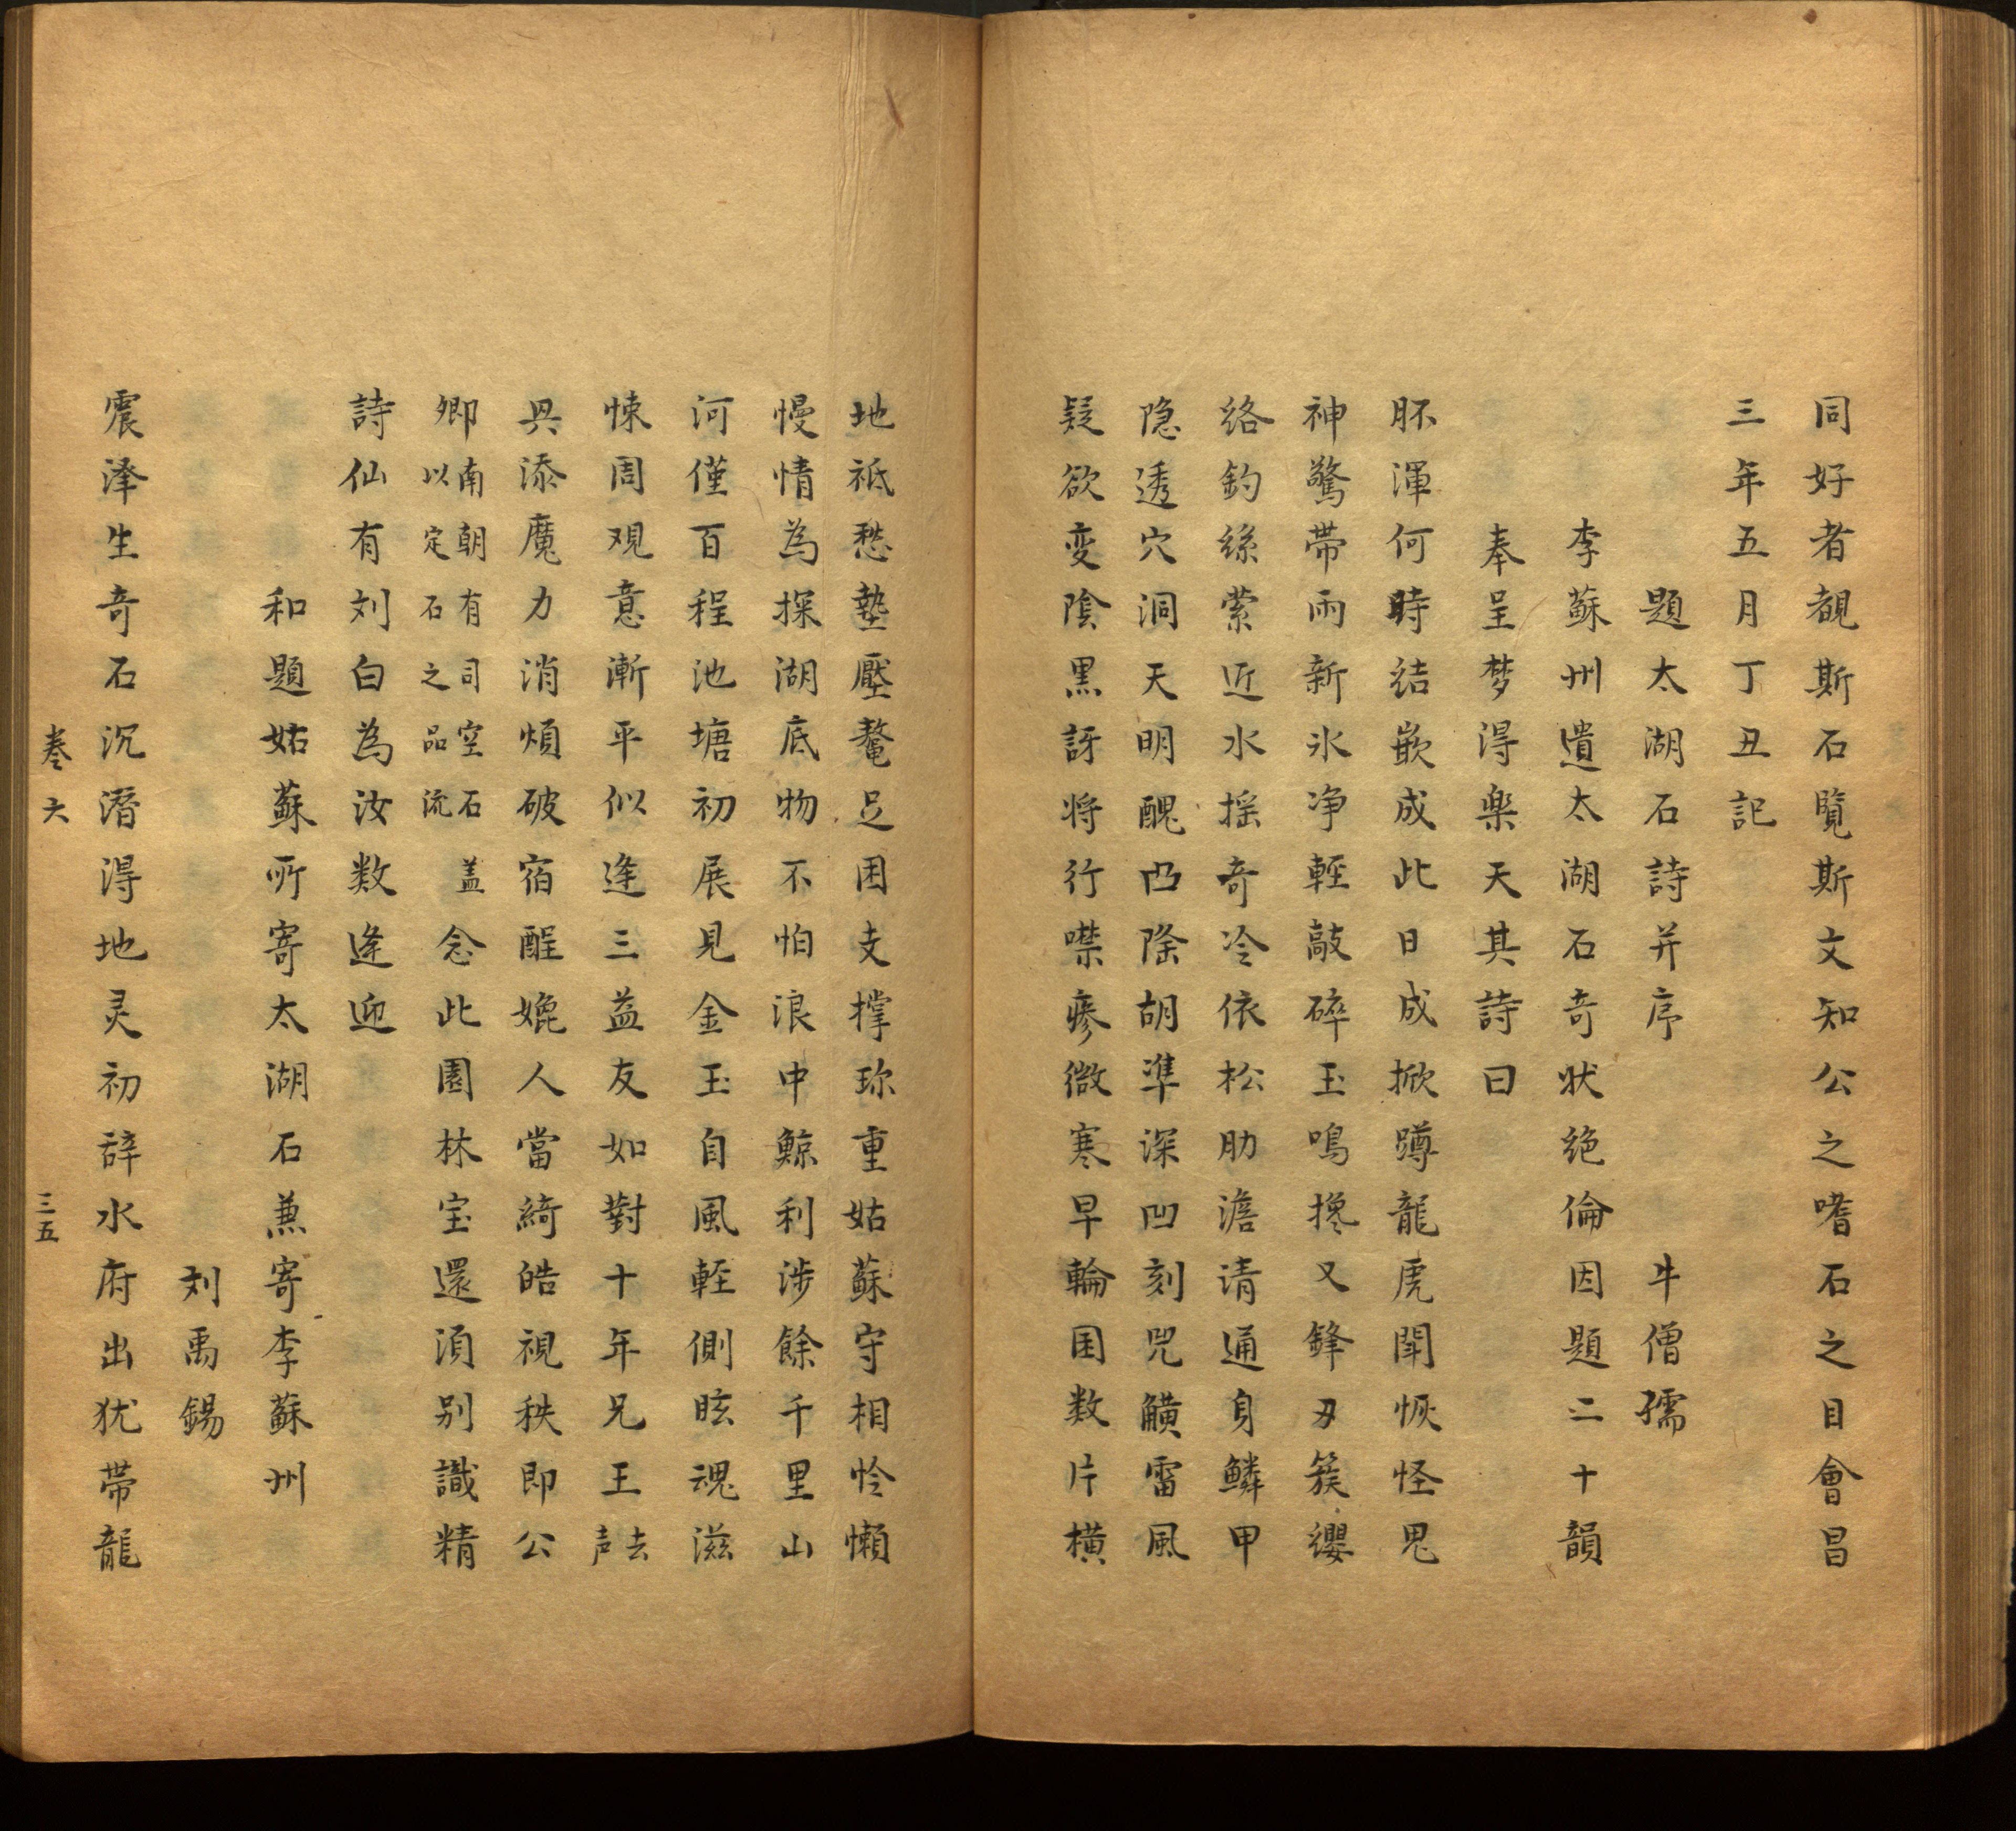 同好者覩斯石覽斯文知公之嗜石之目會昌
三年五月丁丑記
題太湖石詩并序　牛僧孺
李蘇州遺太湖石奇状绝倫因題二十韻
奉呈梦得樂天其詩曰
胚渾何時结嵌成此日成掀蹲龍虎鬪恢怪鬼
神驚帶雨新氷净輕敲碎玉鳴攙叉鋒刃簇纓
络鈞絲縈近水摇奇冷依松助澹清通身鳞甲
隐透穴洞天明醜凸隆胡準深凹刻兕觵雷風
疑欲变陰黒訝将行噤瘮微寒早輪囷数片横
地祗愁墊壓鼇足困支撑珎重姑蘇守相怜懶
慢情為探湖底物不怕浪中鯨利涉餘千里山
河僅百程池塘初展見金玉自風輕側眩魂滋
悚周观意漸平似逢三益友如對十年兄王去声
興添魔力消煩破宿酲媲人當綺皓視秩即公
卿南朝有司空石盖以定石之品流念此園林宝還湏别識精
詩仙有刘白為汝数逢迎
和題姑蘇所寄太湖石兼寄李蘇州
刘禹錫
震泽生奇石沉潛得地灵初辞水府出犹帶龍
卷六　三五